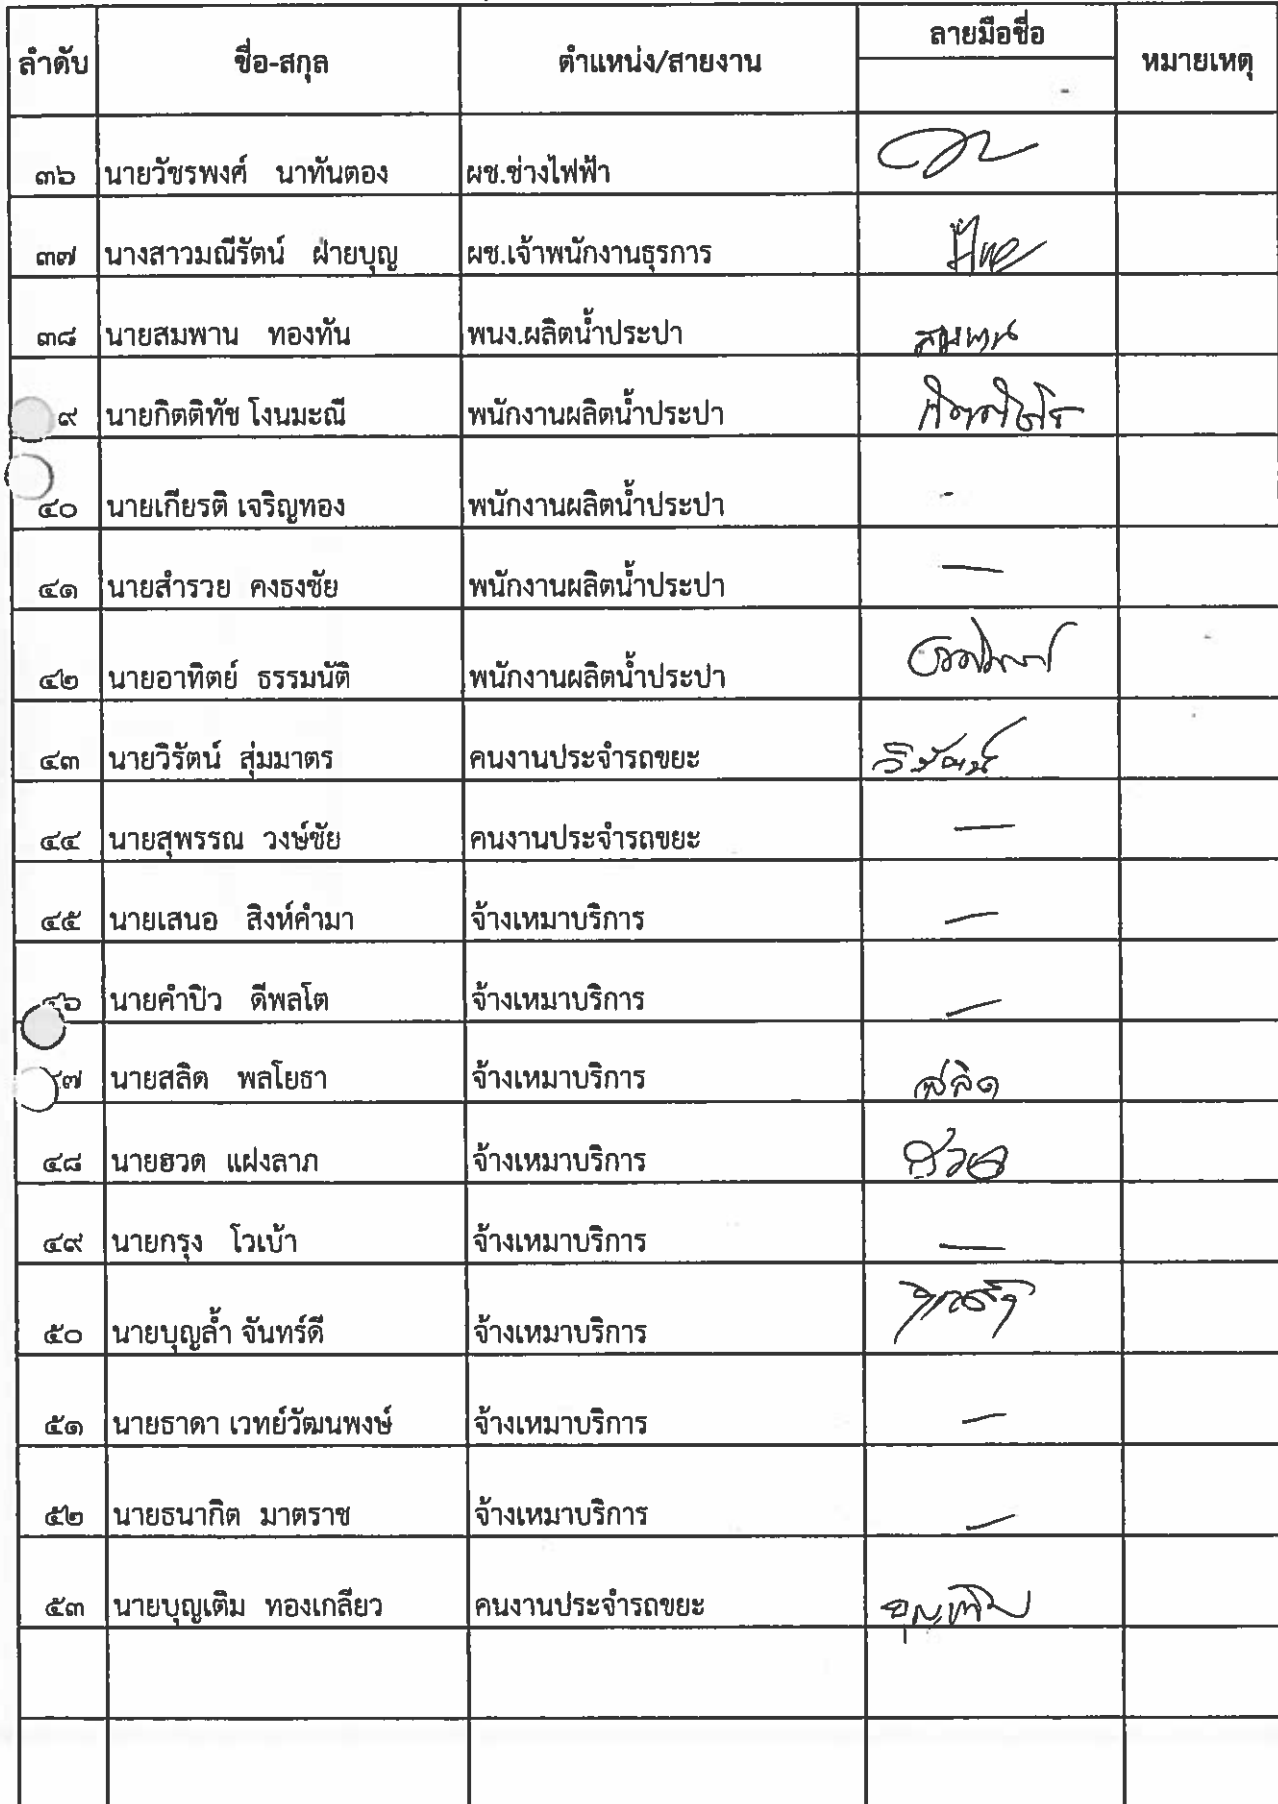 ลำดับ ชื่อ-สกุล ตำแหน่ง/สายงาน ลายมือชื่อ หมายเหตุ
-
๓๖ นายวัชรพงศ์ นาทันตอง ผช.ช่างไฟฟ้า
๓๗ นางสาวมณีรัตน์ ฝ่ายบุญ ผช.เจ้าพนักงานธุรการ
๓๘ นายสมพาน ทองทัน พนง.ผลิตน้ำประปา สมพาน
๙ นายกิตติทัช โงนมะณี พนักงานผลิตน้ำประปา
๔๐ นายเกียรติ เจริญทอง พนักงานผลิตน้ำประปา -
๔๑ นายสำรวย คงธงชัย พนักงานผลิตน้ำประปา -
๔๒ นายอาทิตย์ ธรรมนัติ พนักงานผลิตน้ำประปา
๔๓ นายวิรัตน์ สุ่มมาตร คนงานประจำรถขยะ วิรัตน์
๔๔ นายสุพรรณ วงษ์ชัย คนงานประจำรถขยะ -
๔๕ นายเสนอ สิงห์คำมา จ้างเหมาบริการ -
๔๖ นายคำปิว ดีพลโต จ้างเหมาบริการ -
๔๗ นายสลิด พลโยธา จ้างเหมาบริการ สลิด
๔๘ นายฮวด แฝงลาภ จ้างเหมาบริการ ฮวด
๔๙ นายกรุง โวเบ้า จ้างเหมาบริการ -
๕๐ นายบุญล้ำ จันทร์ดี จ้างเหมาบริการ
๕๑ นายธาดา เวทย์วัฒนพงษ์ จ้างเหมาบริการ -
๕๒ นายธนากิต มาตราช จ้างเหมาบริการ -
๕๓ นายบุญเติม ทองเกลียว คนงานประจำรถขยะ บุญเติม